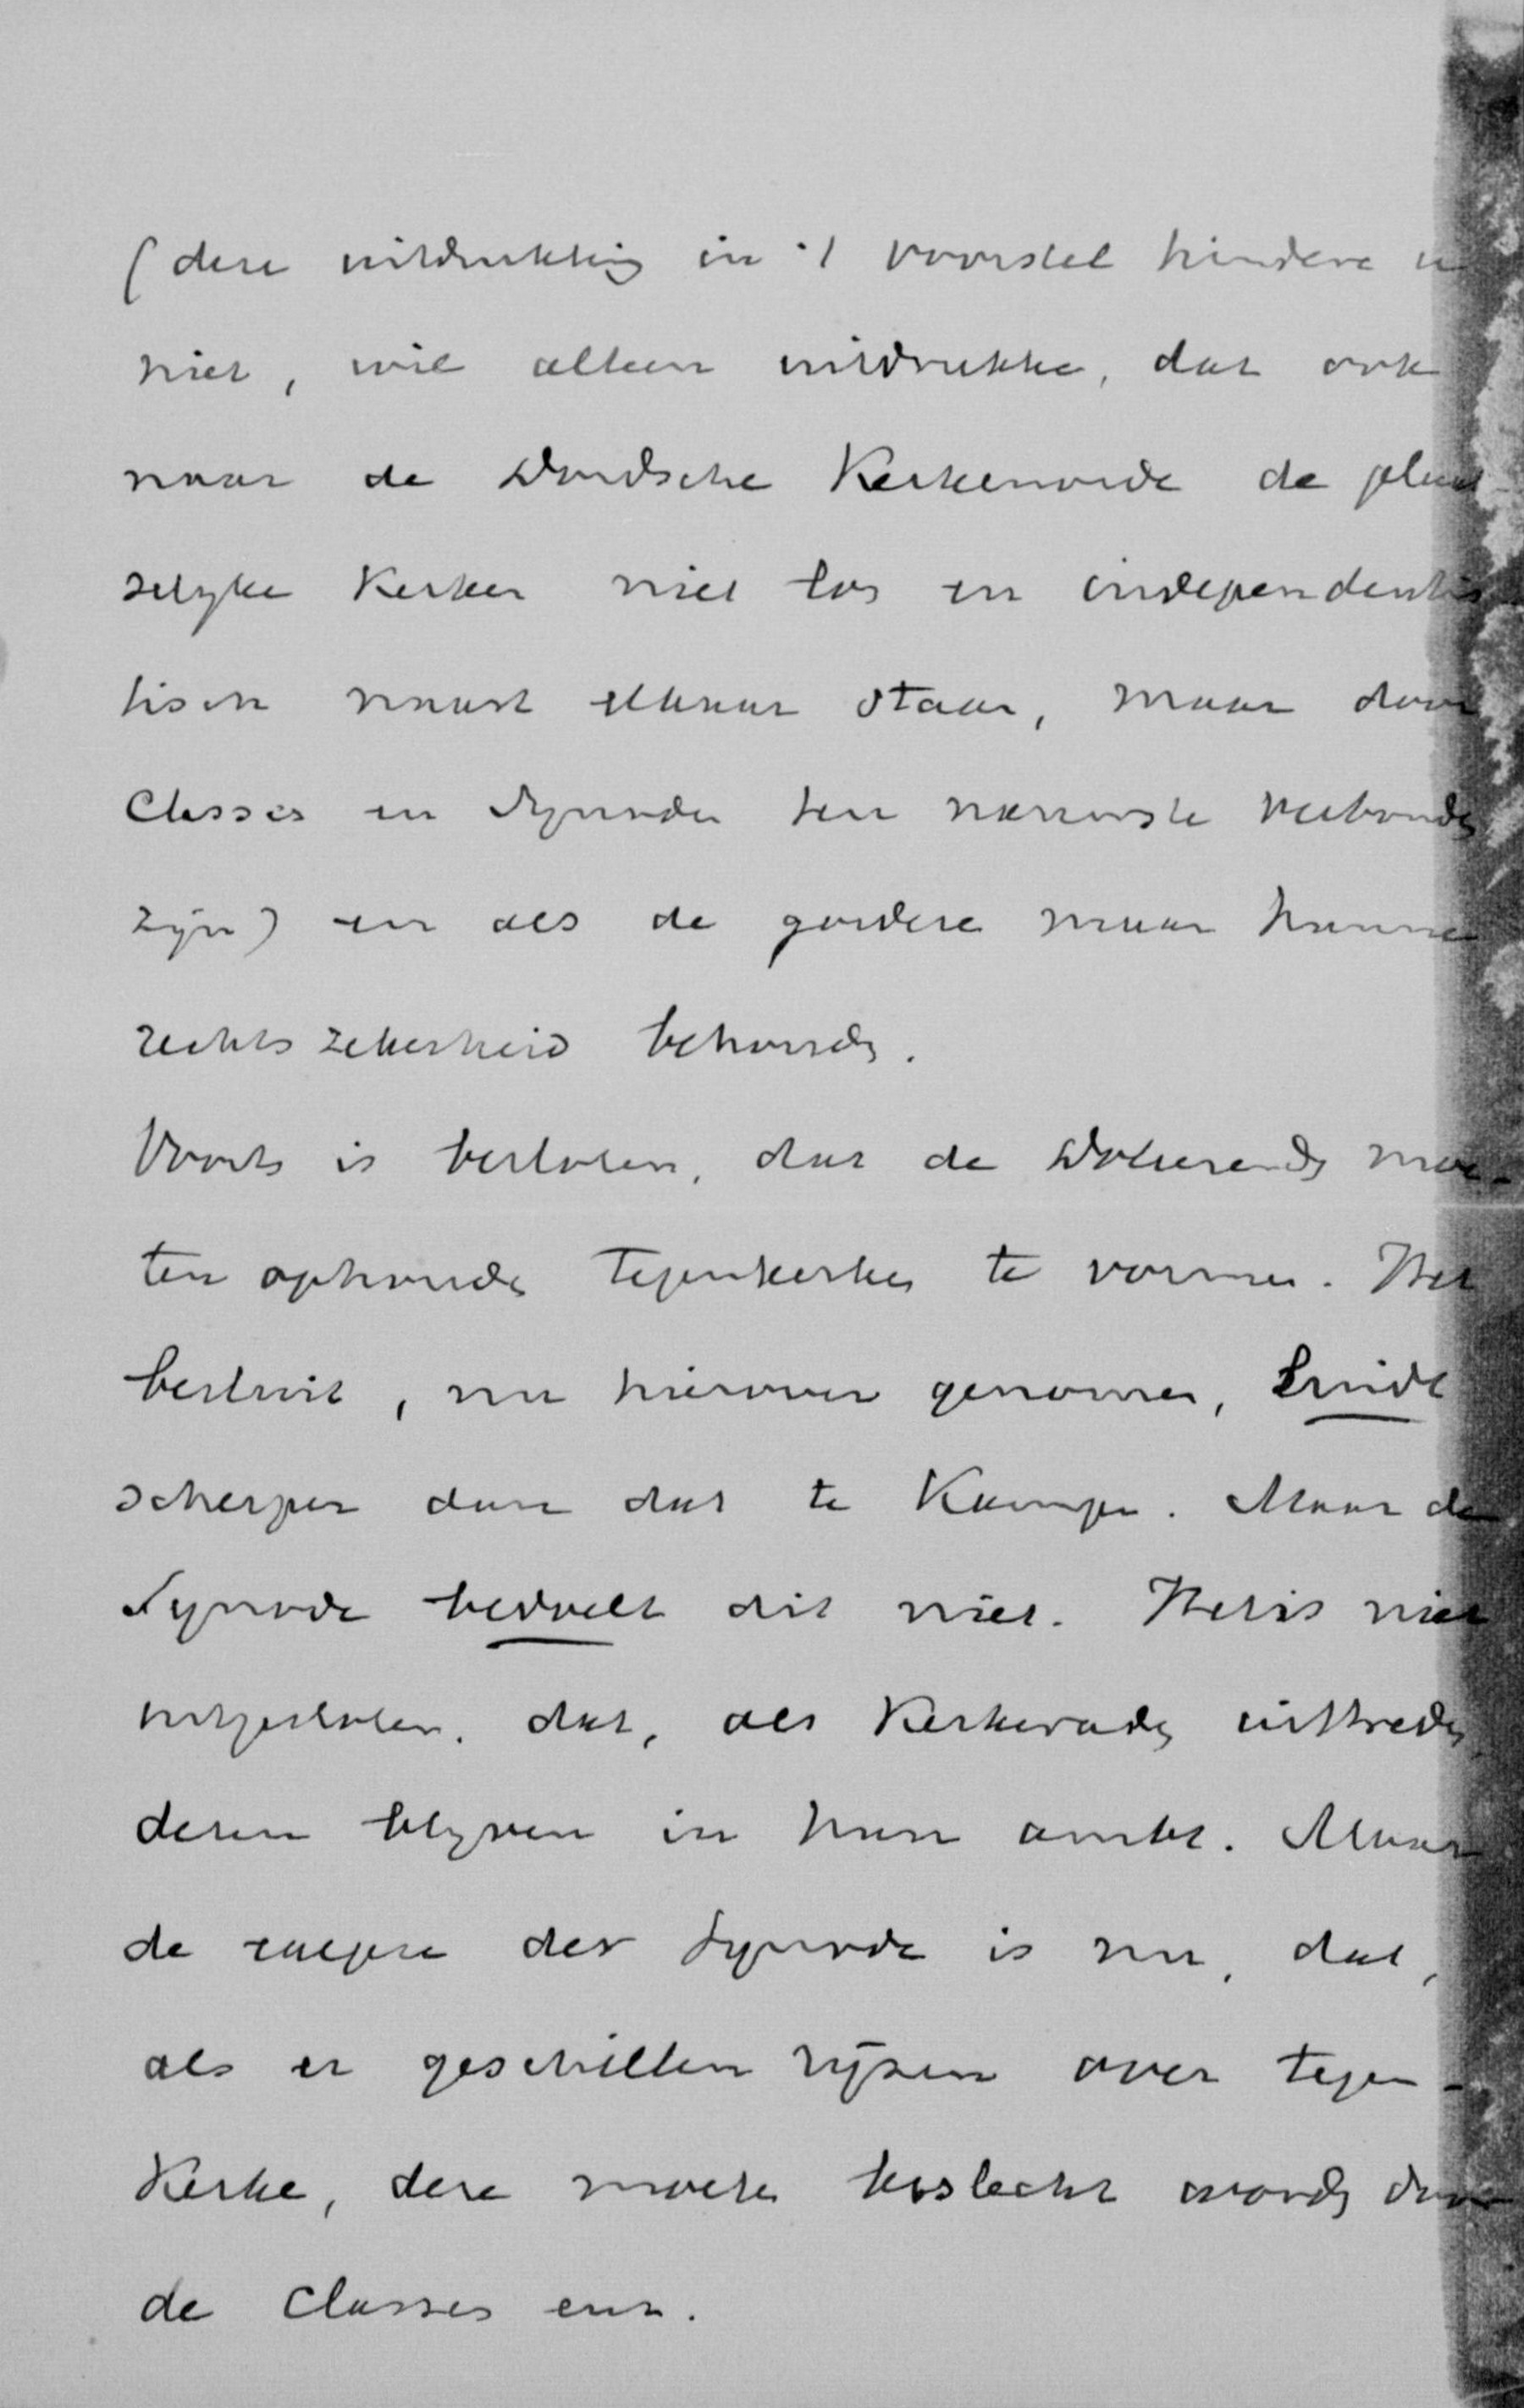 (deze uitdrukking in 't voorstel hindere u
niet, wil alleen uitdrukken, dat ook
naar de Dordsche Kerkenorde de plaat-
selyke Kerken niet los en independentis-
tisch naast elkaar staan, maar door
Classes en Synoden ten nauwste verbonden
zijn) en als de goederen maar hunne
rechtszekerheid behouden.
Voorts is besloten, dat de Doleerenden moe-
ten ophouden Tegenkerken te vormen. Het
besluit, nu hierover genomen, luidt
scherper dan dat te Kampen. Maar de
Synode bedoelt dit niet. Het is niet
uitgesloten, dat, als Kerkeraden uittreden,
dezen blyven in hun ambt. Maar
de der Synode is nu, dat,
als er geschillen rijzen over tegen-
Kerken, deze moeten beslecht worden door
de Classes enz.